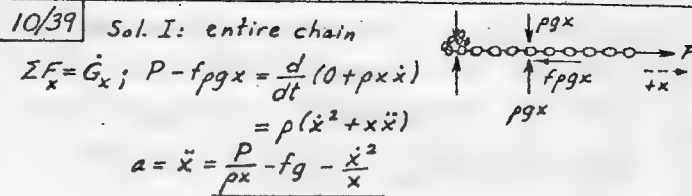 10/39 Sol. I: entire chain
ΣFₓ = Ġₓ; P - fρgx = d/dt (0 + ρxẋ)
= ρ(ẋ² + xẍ)
a = ẍ = P/ρx - fg - ẋ²/x
ρgx
P
fρgx
+x
ρgx